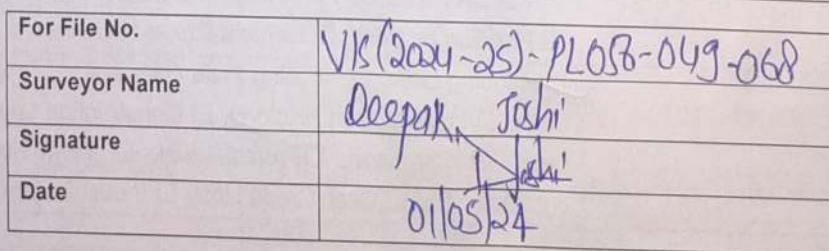 For File No. VIS(2024-25)-PL058-049-068
Surveyor Name Deepak Joshi
Signature Joshi
Date 01/05/24